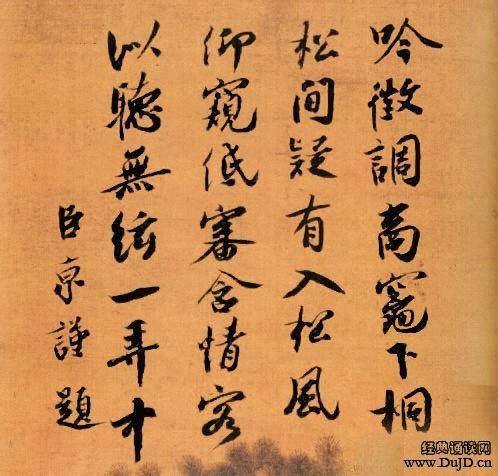 吟徵調商竈下桐
松間疑有入松風
仰窺低審含情客
以聽無絃一弄中
臣京謹題
经典诵读网
www.DujD.cn